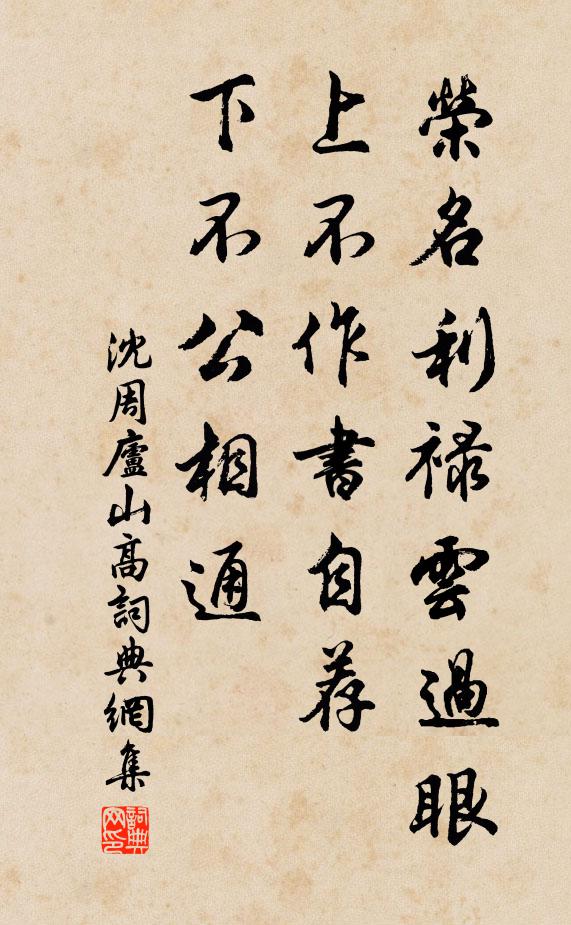 榮名利禄雲過眼
上不作書自荐
下不公相通
沈周廬山高詞典網集
詞典网印